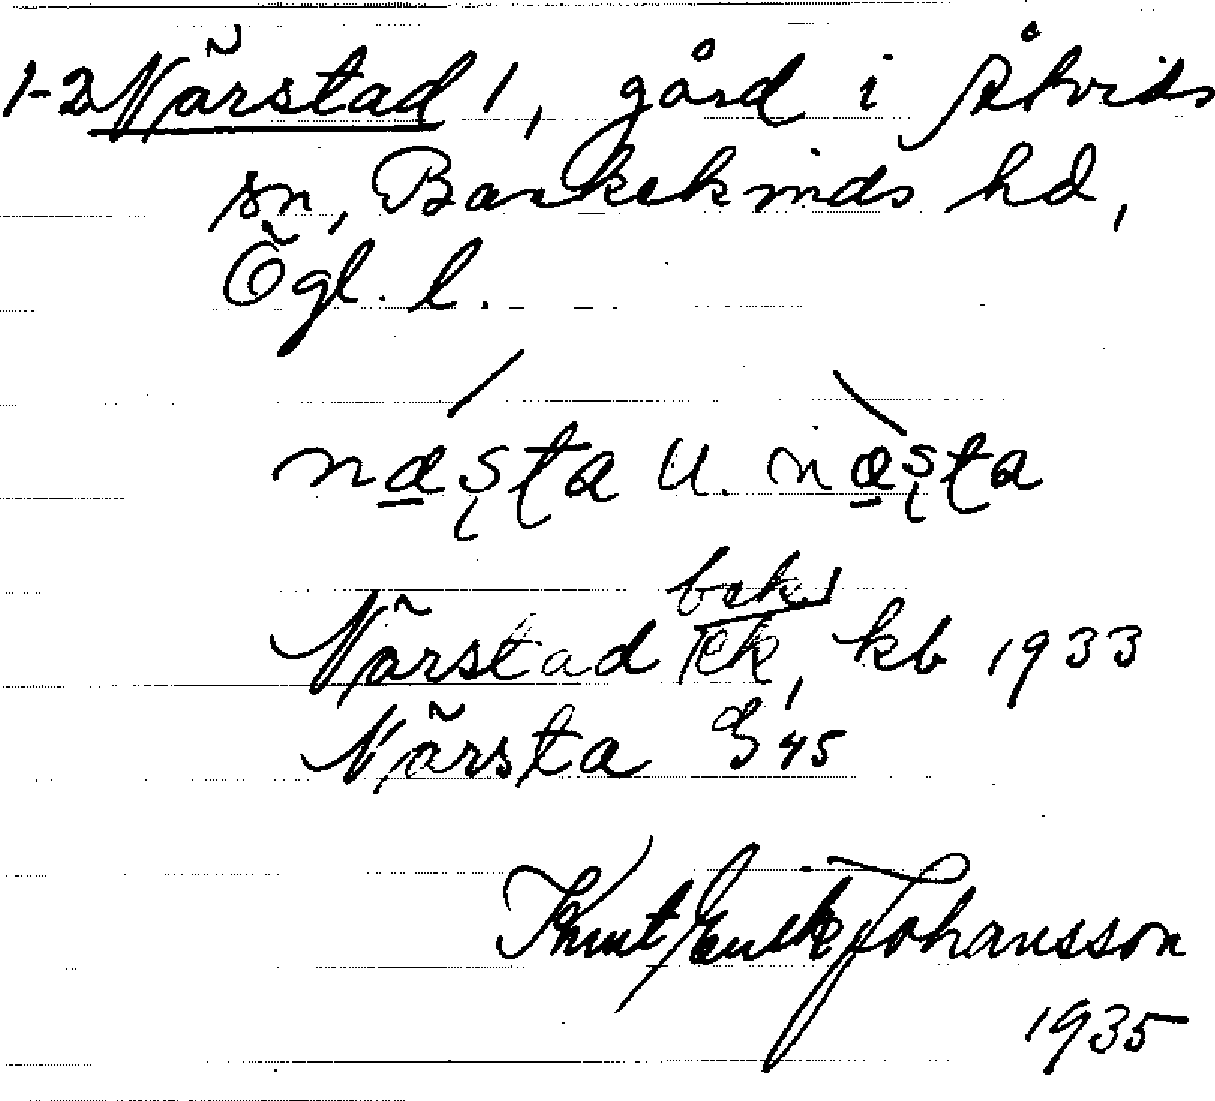 1-2 Närstad 1, gård i Åtvids
sn, Bankekinds hd,
Ögl. l.
næʂʈa u. næʂʈa
bek.
Närstad ek, kb 1933
Närsta G 45
Knut Erik Johansson
1935